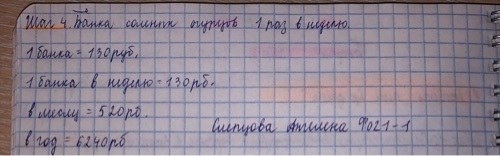 Шаг 4. Банка соленых огурцов 1 раз в неделю.
1 банка = 130 руб.
1 банка в неделю = 130рб.
в месяц = 520рб.
в год = 6240рб
Слепцова Ангелина Ф021-1